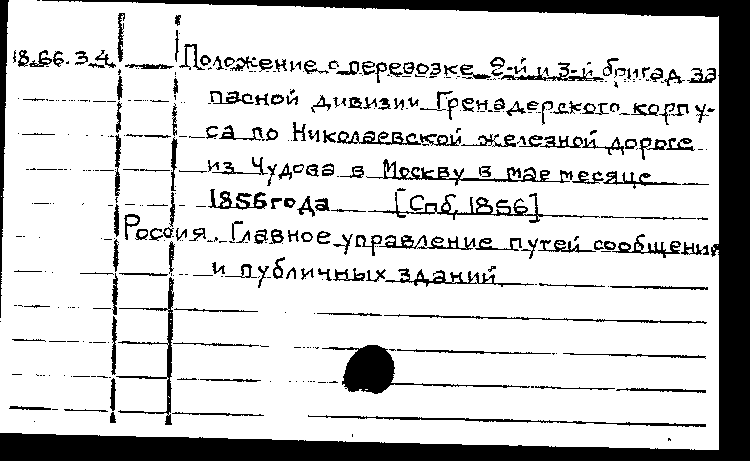 18.66.3.4. Положение о перевозке 2-й и 3-й бригад за
пасной дивизии Гренадерского корпу-
са по Николаевской железной дороге
из Чудова в Москву в мае месяце
1856 года [Спб, 1856]
Россия. Главное управление путей сообщения
и публичных зданий.